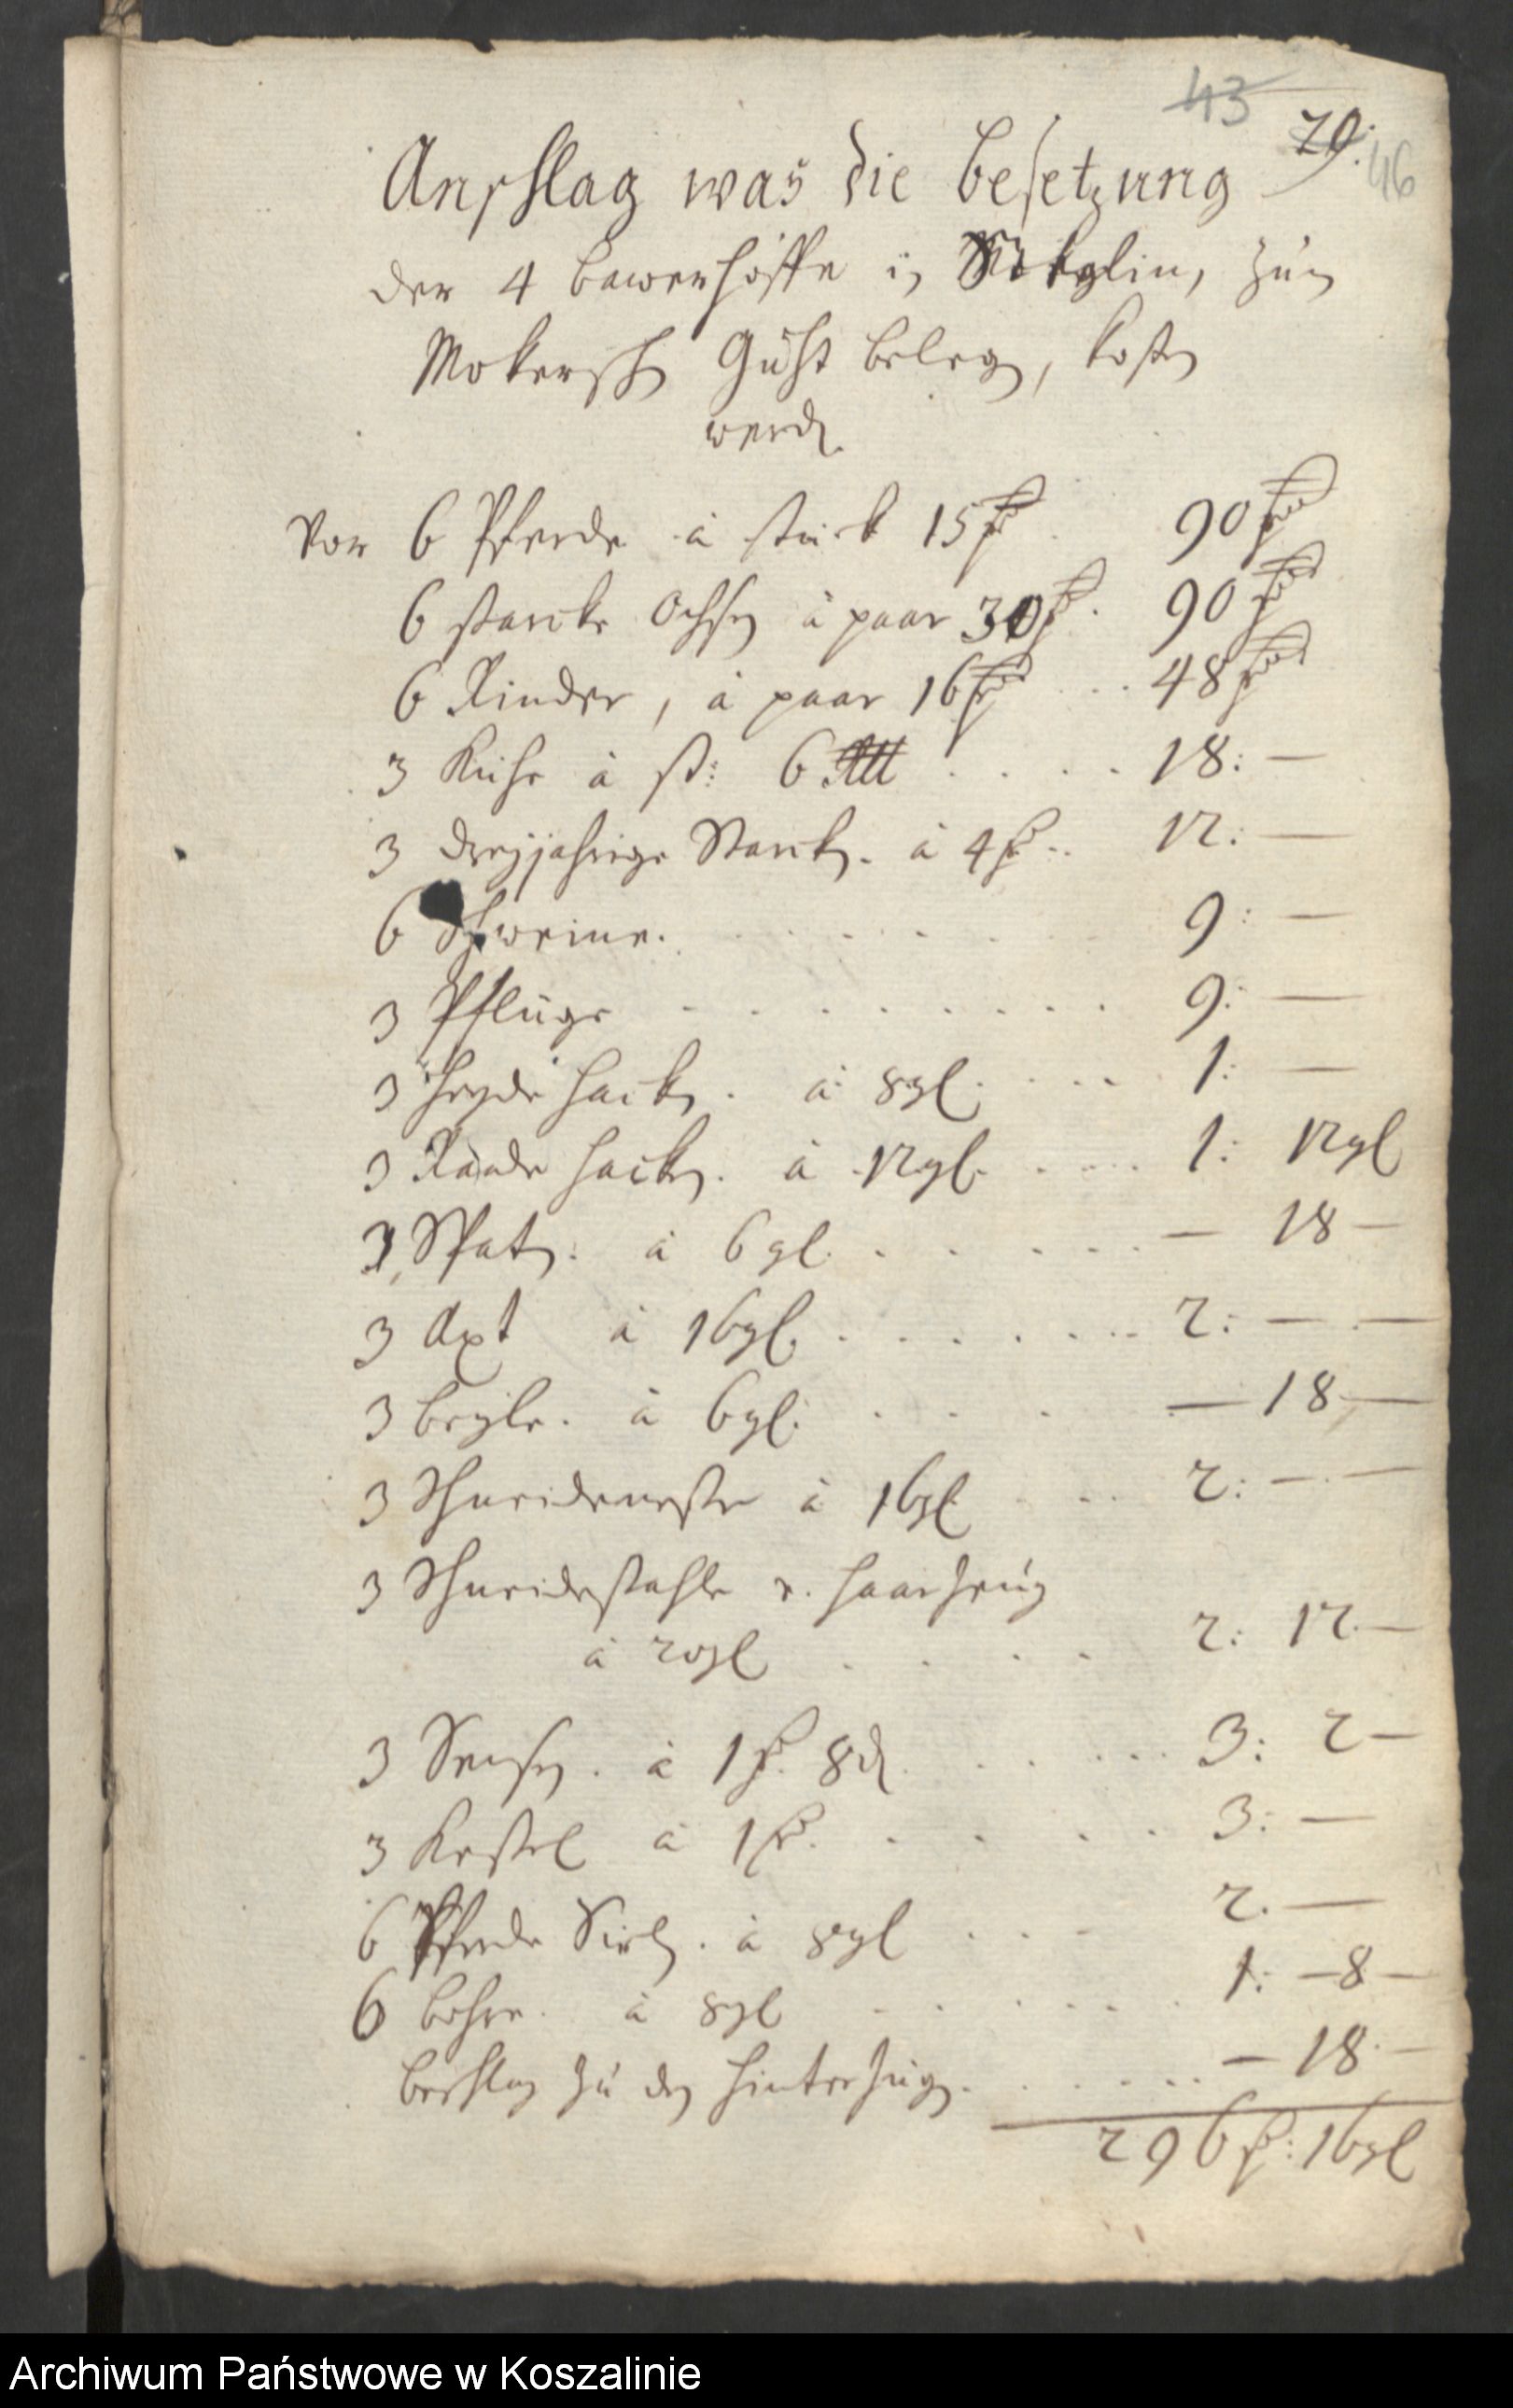 43 79. 46
Anschlag was die besetzung
der 4 bawerhöffe in zum
Mokersch Guht beleg, kosten
werd.
Vor 6 Pferde à stück 15 fl 90 fl
6 starcke Ochsen à paar 30 fl. 90 fl
6 Rinder, à paar 16 fl .. 48 fl
3 Kühe à st: 6 . . . . 18: —
3 dreyjahrige Starcken. à 4 fl .. 12: —
6 Schweine. . . . . . 9: —
3 Pflüge . . . . . . . 9: —
3 heyde hacken. à 8 gl. . . .. 1: —
3 Raade hacken. à 12 gl. . . ... 1: 12 gl
3 Spaten. à 6 gl. . . . ... — 18 —
3 Axt à 16 gl. . . . . ... 2: — . —
3 beyle. à 6 gl. . . . — 18 —
3 à 16 gl . .. 2: — . —
3 Schneidestahle v. haarzeug
à 20 gl . . . . 2: 12. —
3 Sensen. à 1 fl. 8 d. . . ... 3: 2 —
3 Kessel à 1 fl. . . . . 3: —
6 Pferde Siehlen. à 8 gl . . . 2. —
6 bohre. à 8 gl . . . . . . 1: — 8 —
beschlag zu den hinterzügen. . . . ... — 18. —
296 fl: 16 gl
Archiwum Państwowe w Koszalinie